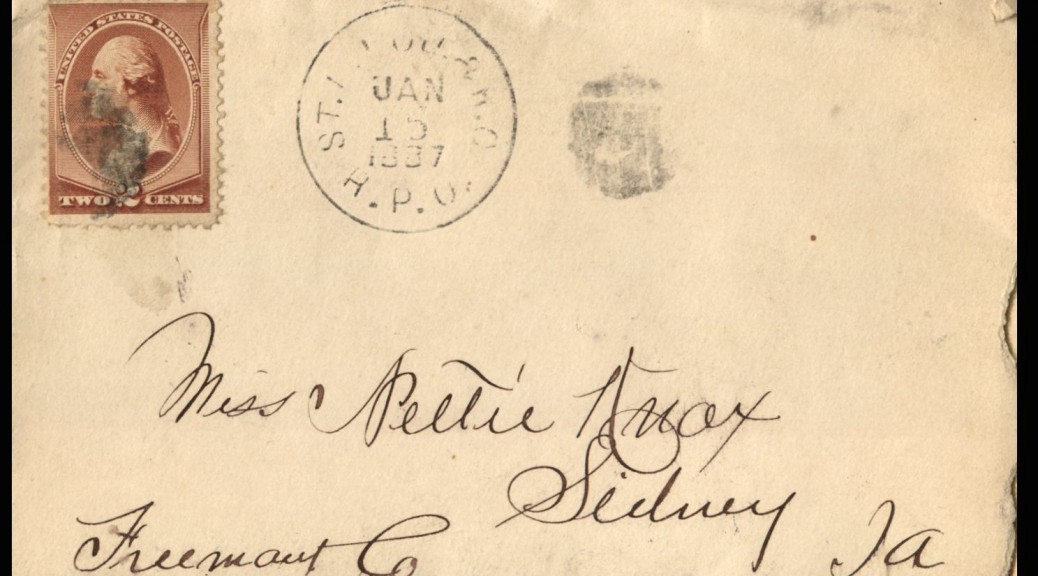 UNITED STATES POSTAGE
TWO 2 CENTS
ST. LOUIS & K.C.
JAN
15
1887
R.P.O.
Miss Nettie Knox
Sidney
Freemont Co Ia